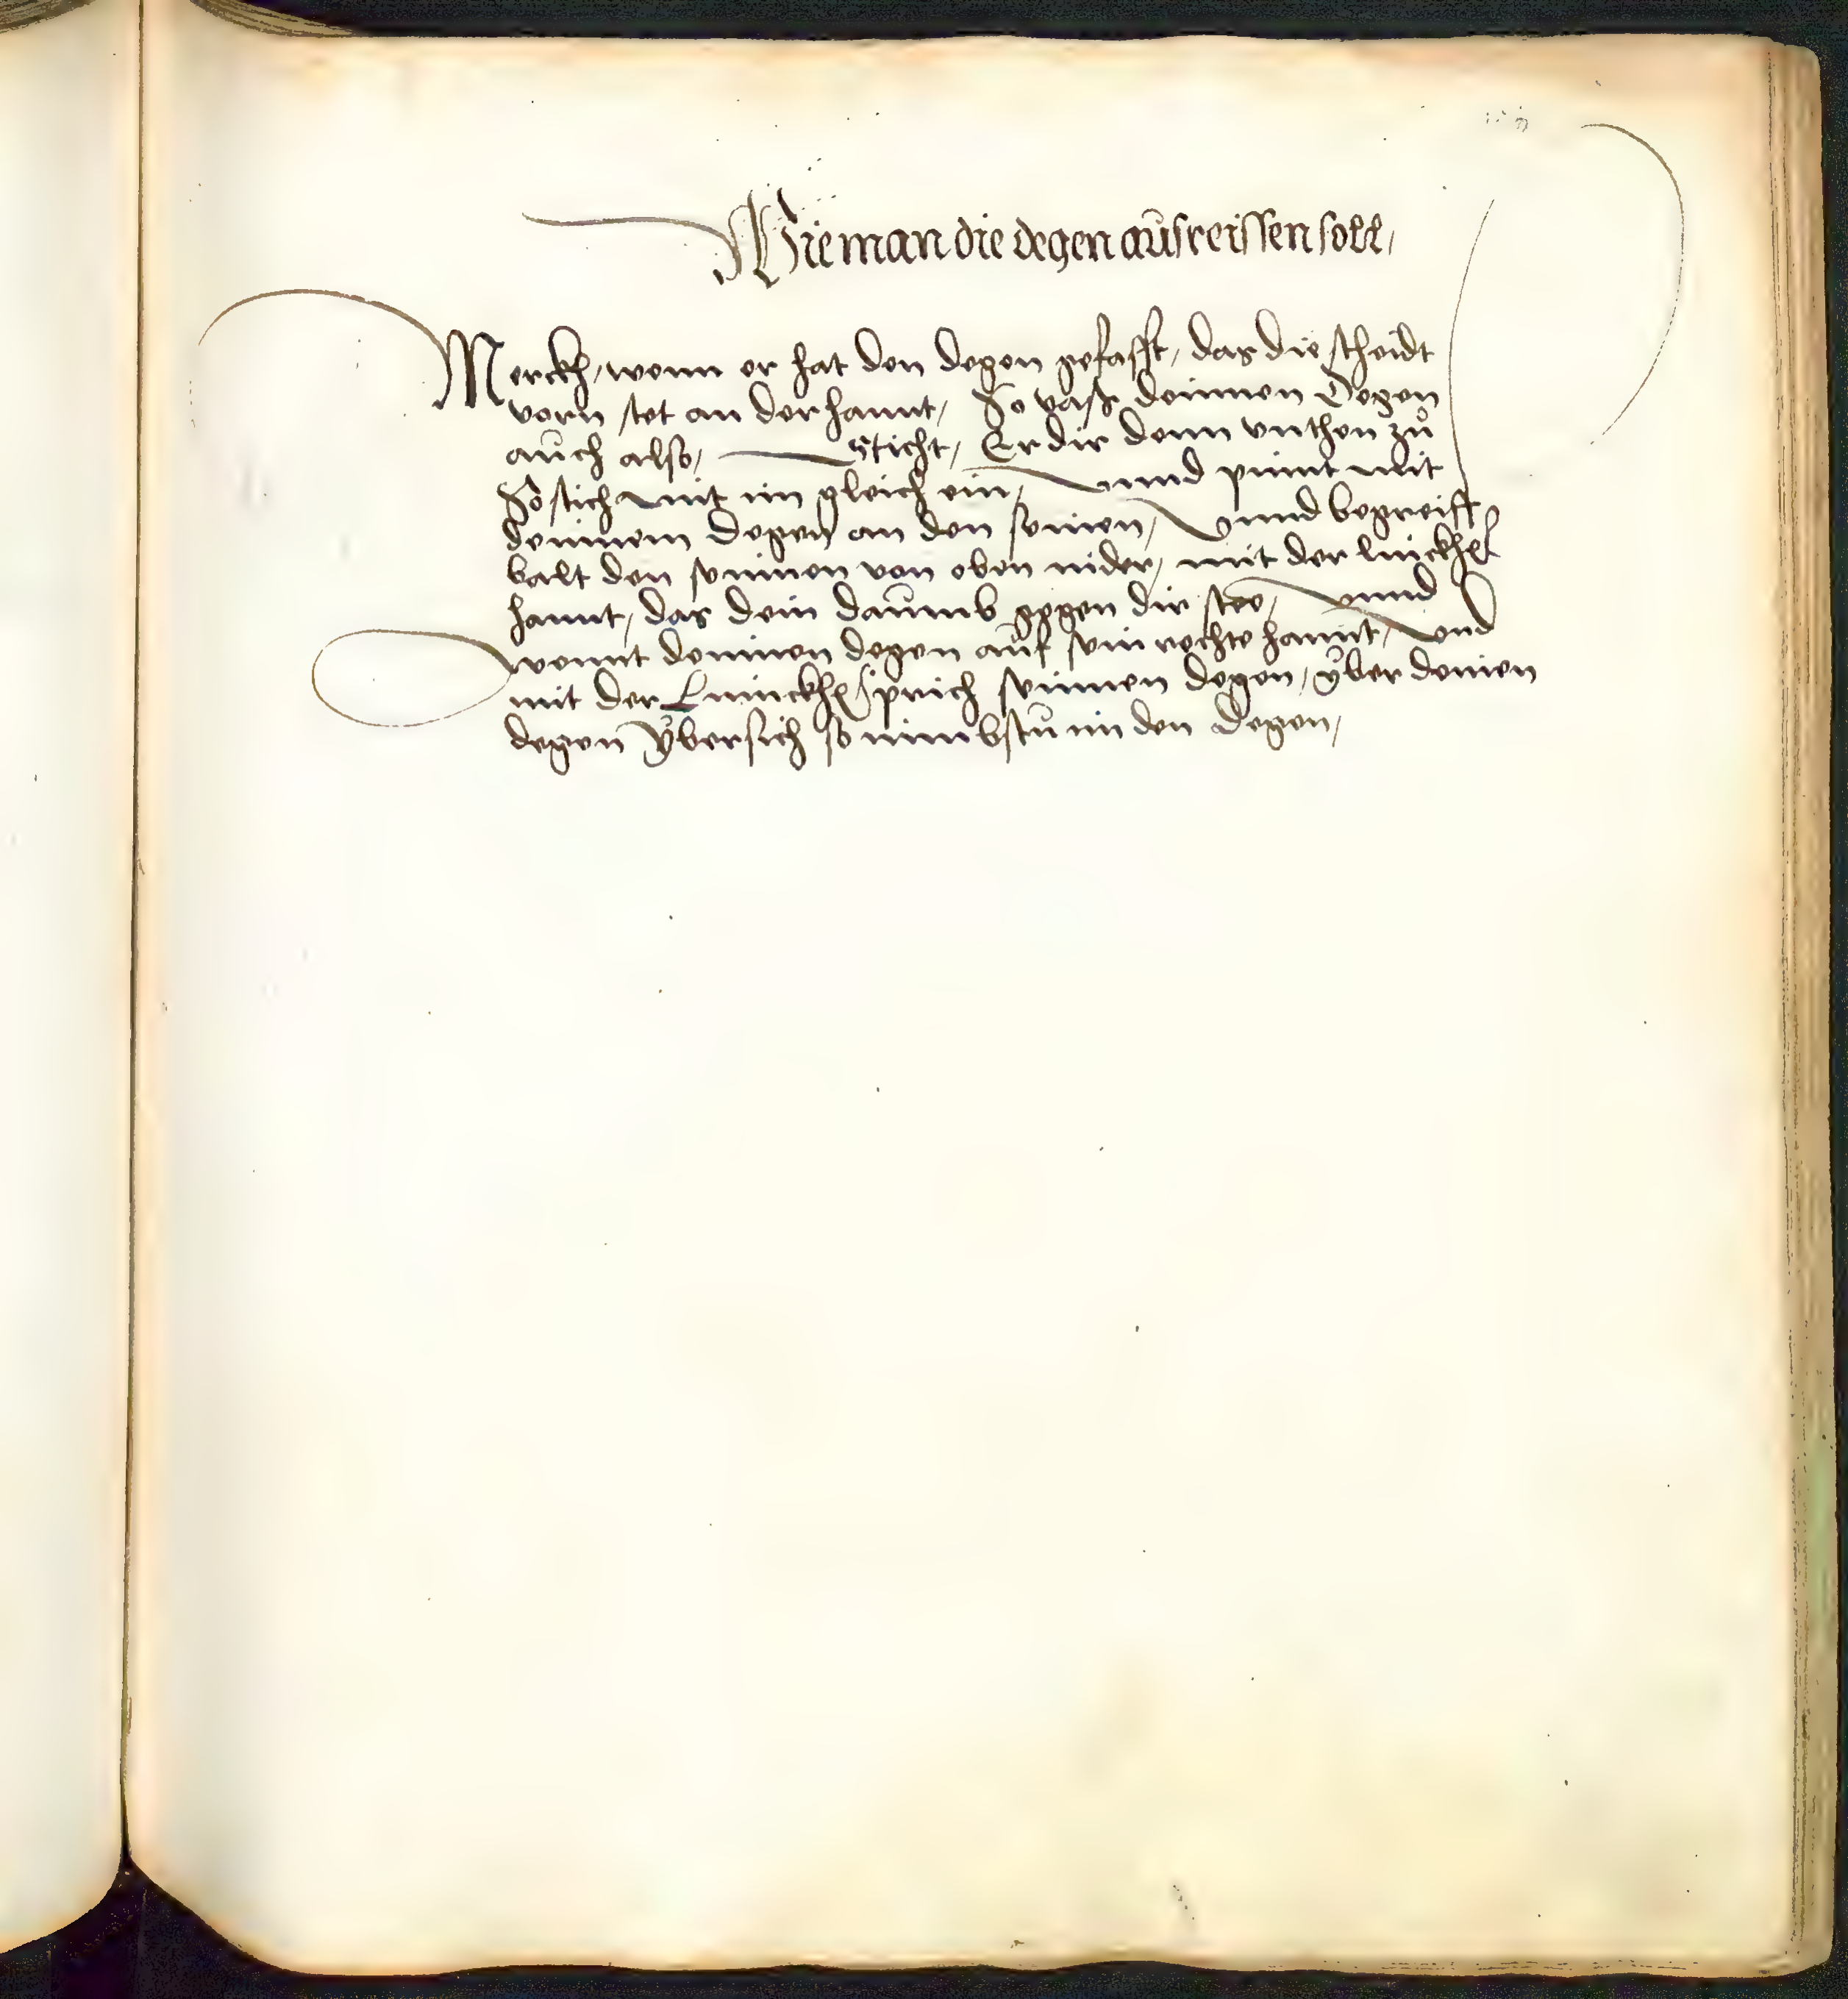 Wie man die degen aŭsreissen soll,
Merckh, wenn er hat den degen gefasst, das die scheidt
vorn stet an der hannt, So vass deinnen Degen
aŭch also, Sticht, Er dir denn vnthen zů
So stich mit im gleich ein, vnnd pinnt mit
deinnem degen an den seinen, vnnd begreifft
balt den seinnen von oben nider, mit der linckhen
hannt, das dein daŭmb gegen dir stee, vnnd
wennt deinnen degen aŭf sein rechte hannt, vnd
mit der Linnckhen sprich seinnen degen, ÿber deinen
degen ÿbersich so nimbstŭ im den Degen,